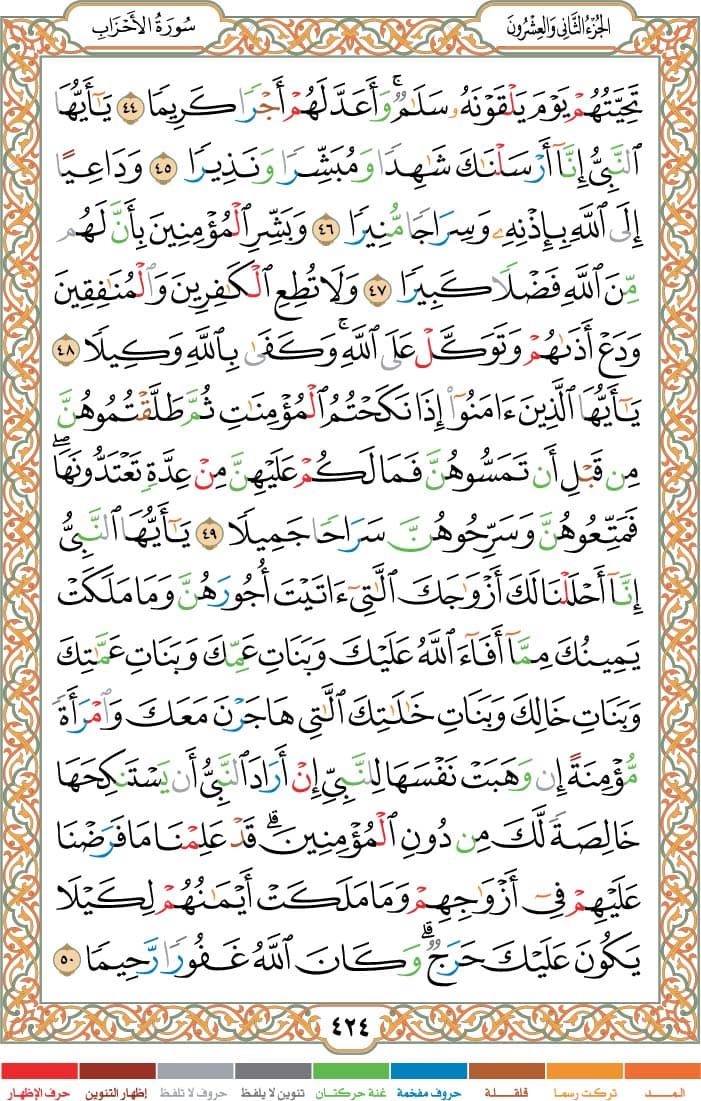 الجُزْءُ الثَّانِي وَالعِشْرُونَ
سُورَةُ الأَحْزَابِ
تَحِيَّتُهُمْ يَوْمَ يَلْقَوْنَهُۥ سَلَٰمٌۚ وَأَعَدَّ لَهُمْ أَجْرًا كَرِيمًا ٤٤ يَٰٓأَيُّهَا
ٱلنَّبِيُّ إِنَّآ أَرْسَلْنَٰكَ شَٰهِدًا وَمُبَشِّرًا وَنَذِيرًا ٤٥ وَدَاعِيًا
إِلَى ٱللَّهِ بِإِذْنِهِۦ وَسِرَاجًا مُّنِيرًا ٤٦ وَبَشِّرِ ٱلْمُؤْمِنِينَ بِأَنَّ لَهُم
مِّنَ ٱللَّهِ فَضْلًا كَبِيرًا ٤٧ وَلَا تُطِعِ ٱلْكَٰفِرِينَ وَٱلْمُنَٰفِقِينَ
وَدَعْ أَذَىٰهُمْ وَتَوَكَّلْ عَلَى ٱللَّهِۚ وَكَفَىٰ بِٱللَّهِ وَكِيلًا ٤٨
يَٰٓأَيُّهَا ٱلَّذِينَ ءَامَنُوٓا۟ إِذَا نَكَحْتُمُ ٱلْمُؤْمِنَٰتِ ثُمَّ طَلَّقْتُمُوهُنَّ
مِن قَبْلِ أَن تَمَسُّوهُنَّ فَمَا لَكُمْ عَلَيْهِنَّ مِنْ عِدَّةٍ تَعْتَدُّونَهَاۖ
فَمَتِّعُوهُنَّ وَسَرِّحُوهُنَّ سَرَاحًا جَمِيلًا ٤٩ يَٰٓأَيُّهَا ٱلنَّبِيُّ
إِنَّآ أَحْلَلْنَا لَكَ أَزْوَٰجَكَ ٱلَّٰتِيٓ ءَاتَيْتَ أُجُورَهُنَّ وَمَا مَلَكَتْ
يَمِينُكَ مِمَّآ أَفَآءَ ٱللَّهُ عَلَيْكَ وَبَنَاتِ عَمِّكَ وَبَنَاتِ عَمَّٰتِكَ
وَبَنَاتِ خَالِكَ وَبَنَاتِ خَٰلَٰتِكَ ٱلَّٰتِي هَاجَرْنَ مَعَكَ وَٱمْرَأَةً
مُّؤْمِنَةً إِن وَهَبَتْ نَفْسَهَا لِلنَّبِيِّ إِنْ أَرَادَ ٱلنَّبِيُّ أَن يَسْتَنكِحَهَا
خَالِصَةً لَّكَ مِن دُونِ ٱلْمُؤْمِنِينَۗ قَدْ عَلِمْنَا مَا فَرَضْنَا
عَلَيْهِمْ فِيٓ أَزْوَٰجِهِمْ وَمَا مَلَكَتْ أَيْمَٰنُهُمْ لِكَيْلَا
يَكُونَ عَلَيْكَ حَرَجٌۗ وَكَانَ ٱللَّهُ غَفُورًا رَّحِيمًا ٥٠
٤٢٤
المـــد
تركت رسما
قلقـــلة
حروف مفخمة
غنة حركتان
تنوين لا يلفظ
حروف لا تلفظ
إظهار التنوين
حرف الإظهار